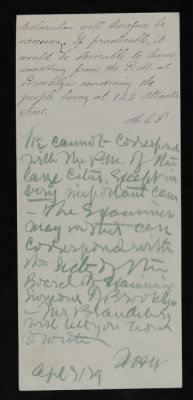 declaration will therefore be
necessary. If practicable, it
would be desirable to learn
something from the P.M. at
Brooklyn concerning the
people living at 122 Atlantic
Street.
We cannot correspond
with the P.M. of the
large Cities, except in
very important cases
- The Examiner
may in this case
correspond with
the Secty of the
Board of Examining
Surgeons of Brooklyn
- Mr
will let you know
Apl 3/79